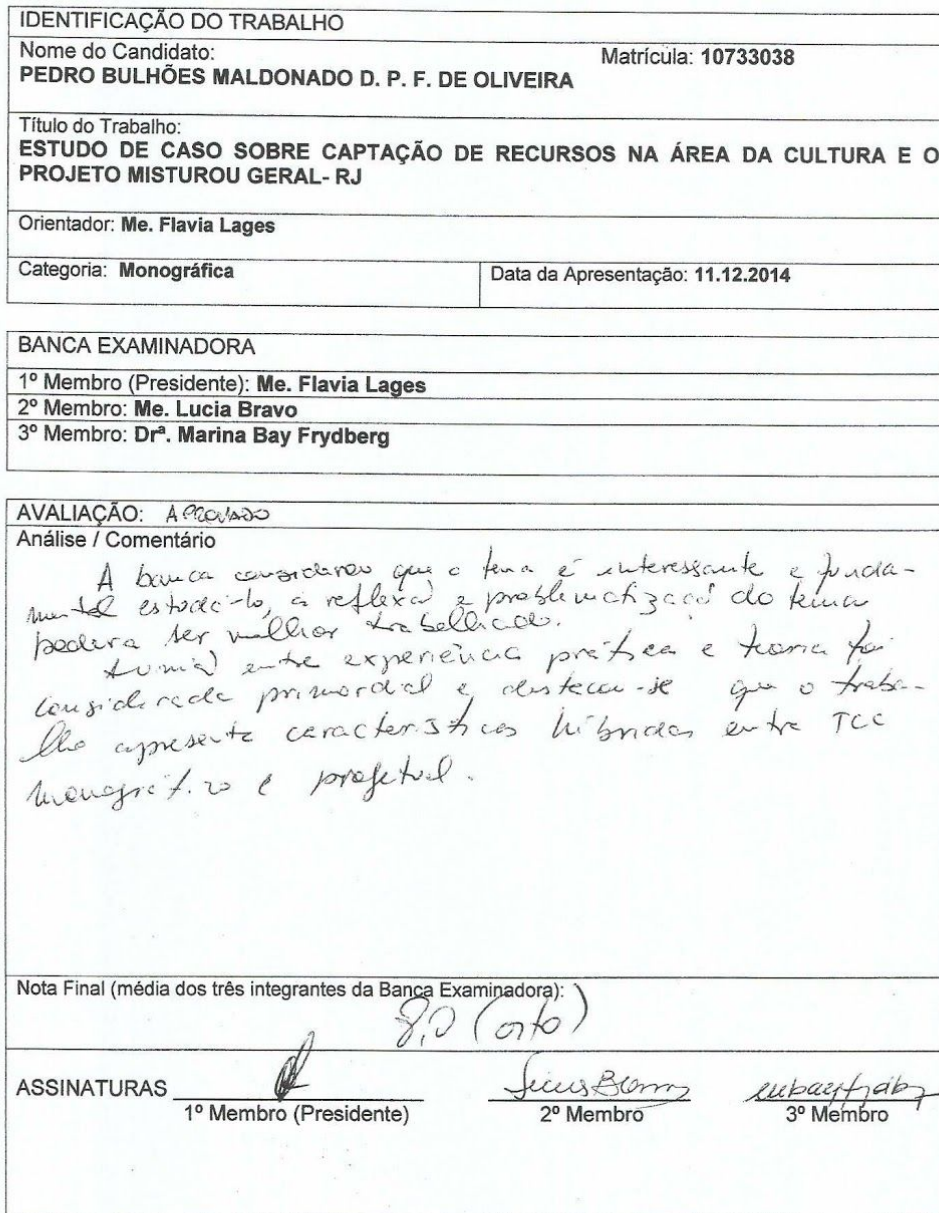 IDENTIFICAÇÃO DO TRABALHO
Nome do Candidato: Matrícula: 10733038
PEDRO BULHÕES MALDONADO D. P. F. DE OLIVEIRA
Título do Trabalho:
ESTUDO DE CASO SOBRE CAPTAÇÃO DE RECURSOS NA ÁREA DA CULTURA E O
PROJETO MISTUROU GERAL- RJ
Orientador: Me. Flavia Lages
Categoria: Monográfica Data da Apresentação: 11.12.2014
BANCA EXAMINADORA
1º Membro (Presidente): Me. Flavia Lages
2º Membro: Me. Lucia Bravo
3º Membro: Drª. Marina Bay Frydberg
AVALIAÇÃO: APROVADO
Análise / Comentário
A banca considerou que o tema é interessante e funda-
mental estudá-lo, a reflexão e problematização do tema
podera ser melhor trabalhado.
entre experiência prática e teoria foi
considerada primordial e destacou-se que o traba-
lho apresenta características híbridas entre TCC
monográfico e projetual.
Nota Final (média dos três integrantes da Banca Examinadora):
8,0 (oito)
ASSINATURAS
1º Membro (Presidente) 2º Membro 3º Membro